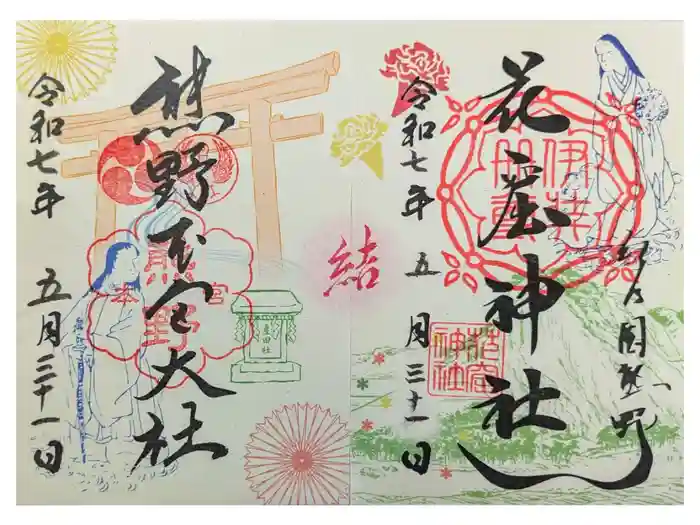 紀乃国熊野
花窟神社
伊弉
冊尊
花窟
神社
令和七年 五月三十一日
結
熊野本宮大社
熊野
本宮
産田社
令和七年 五月三十一日